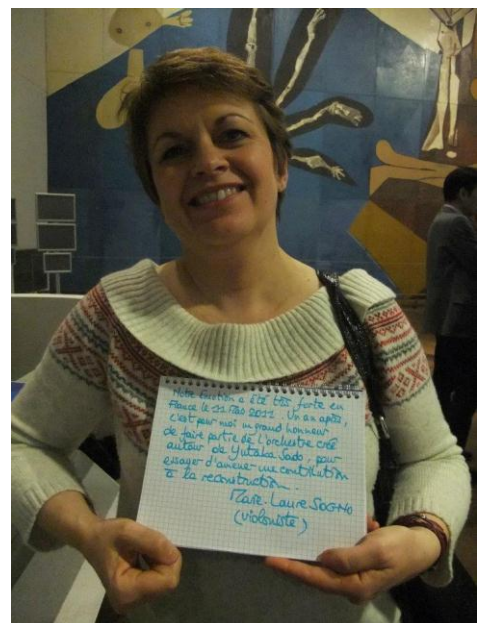 Notre émotion a été très forte en
France le 11 Mars 2011. Un an après,
c'est pour moi un grand honneur
de faire partie de l'orchestre créé
autour de Yutaka Sado, pour
essayer d'amener une contribution
à la reconstruction.
Marie-Laure SOGNO
(violoniste)